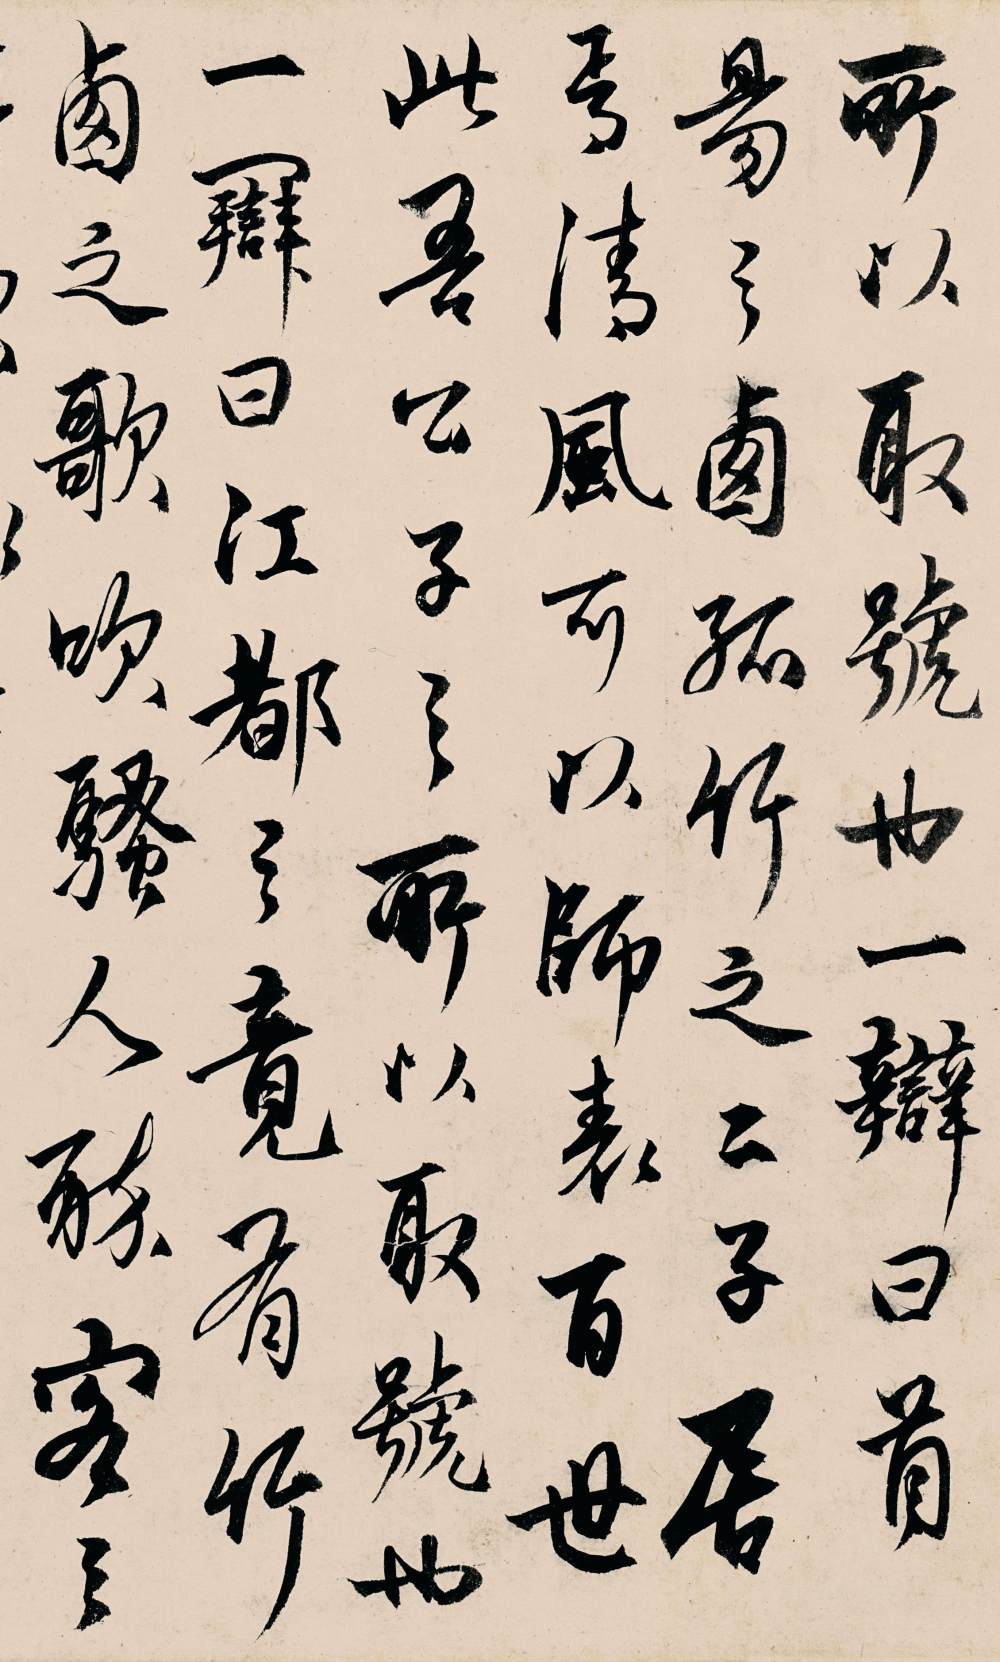 所以取號也一辯曰首
昜之鹵孤竹之二子居
焉清風可以師表百世
此吾公子之所以取號也
一辯曰江都之竟有竹
鹵之歌吹騷人醉客之